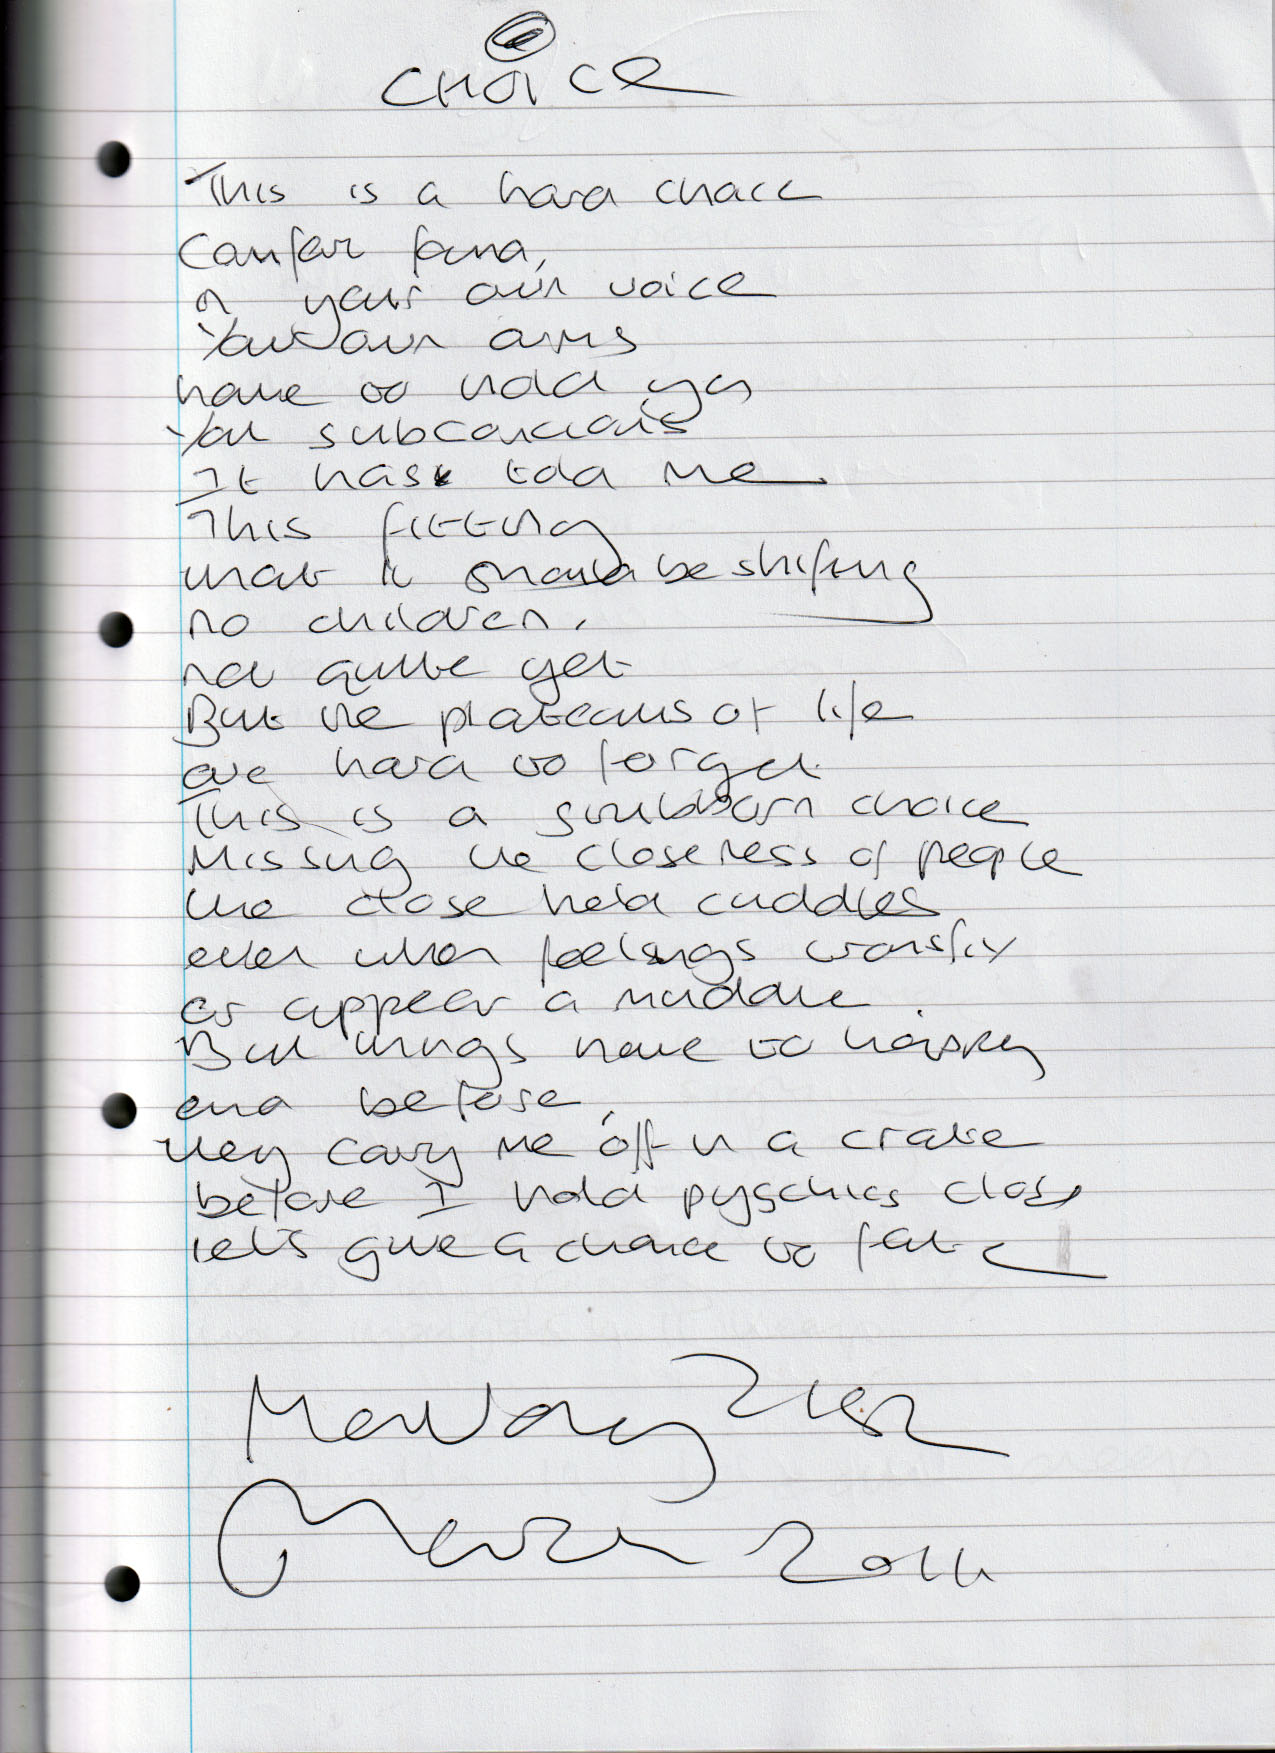 CHOICE
This is a hard choice
Comfort found,
in your own voice
Your own arms
have to hold you
Your subconscious
It has told me.
This fitting
that it should be shifting
no children,
not quite yet
But the plateaus of life
are hard to forget
This is a stubborn choice
Missing the closeness of people
the close held cuddles
even when feelings transfix
or appear a muddle.
But things have to happen
and before,
they carry me off in a crate
before I hold pyschics close
let's give a chance to fate
Monday 21st
March 2011